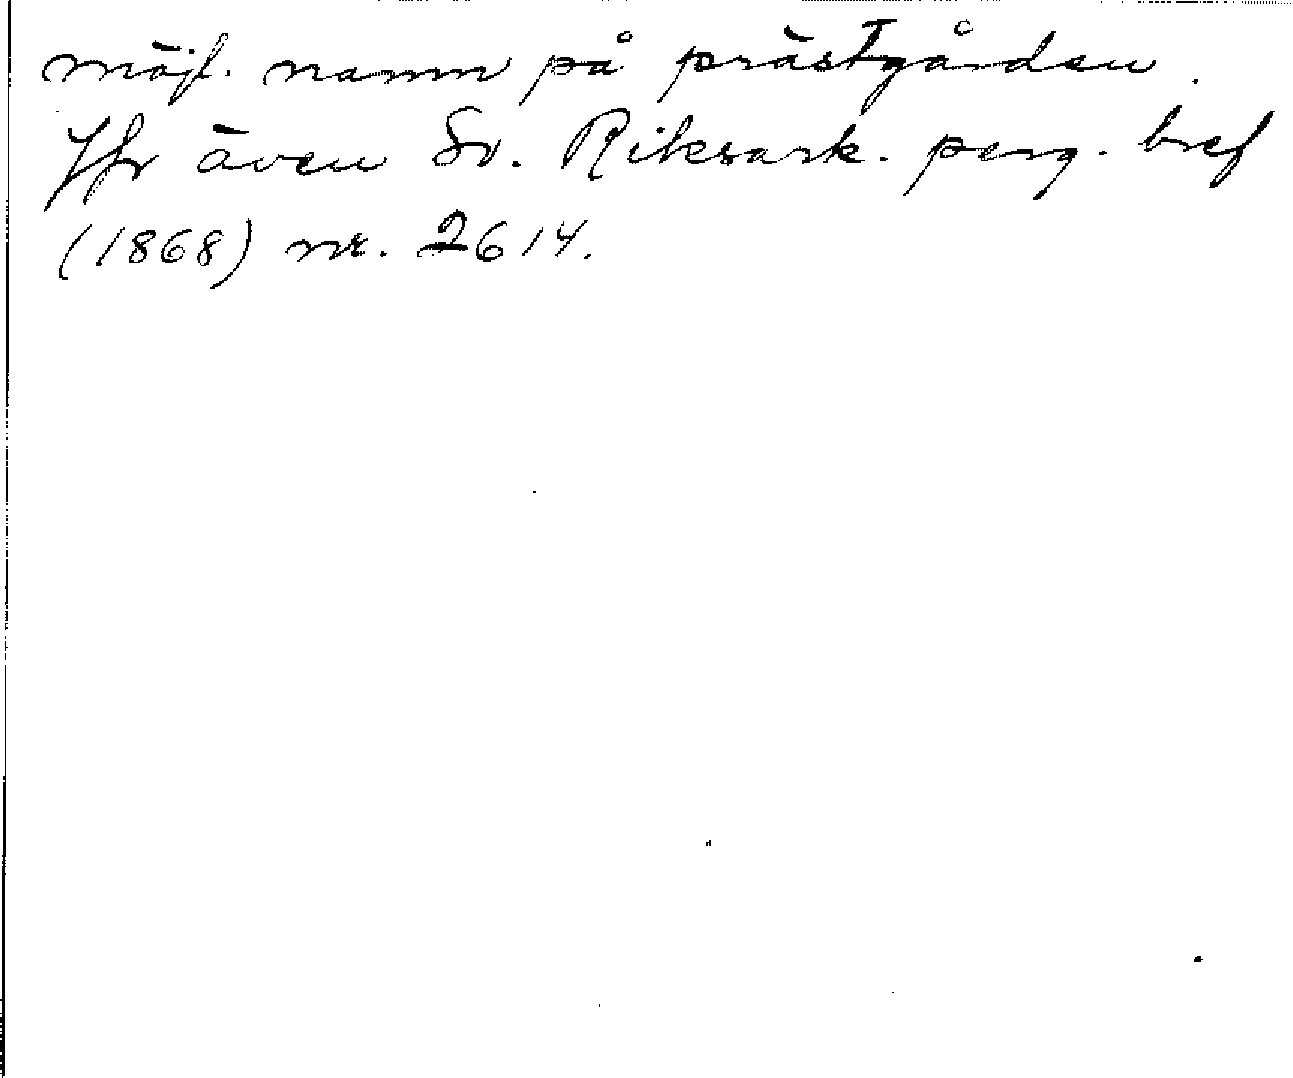 möjl. namn på prästgården.
Jfr även Sv. Riksark. perg. bref
(1868) nr. 2614.